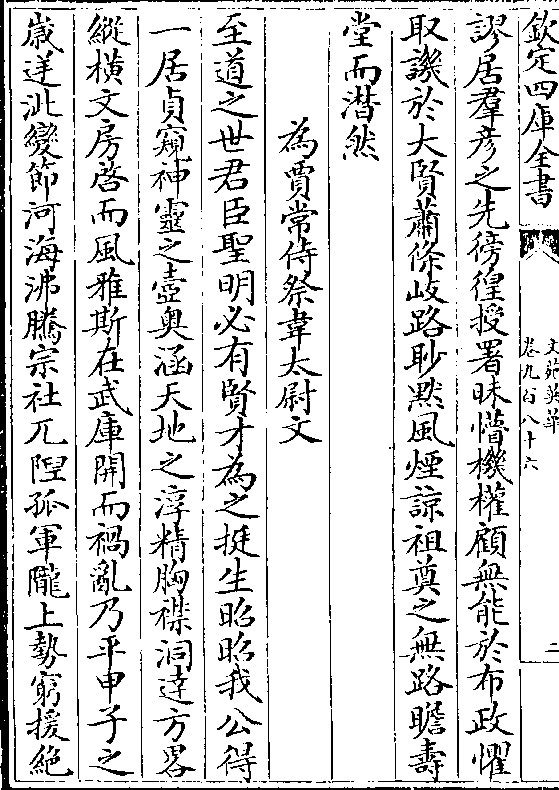 欽定四庫全書
文苑英華
卷九百八十六
二
謬居羣彥之先徬徨授署昧懵機權顧無能於布政懼
取譏於大賢蕭條岐路眇默風煙諒祖奠之無路瞻壽
堂而潛然
為賈常侍祭韋太尉文
至道之世君臣聖明必有賢才為之挺生昭昭我公得
一居貞窺神靈之壺奥涵天地之淳精胸襟洞達方畧
縱橫文房啓而風雅斯在武庫開而禍亂乃平申子之
嵗迍沘變節河海沸騰宗社兀隉孤軍隴上勢窮援絶